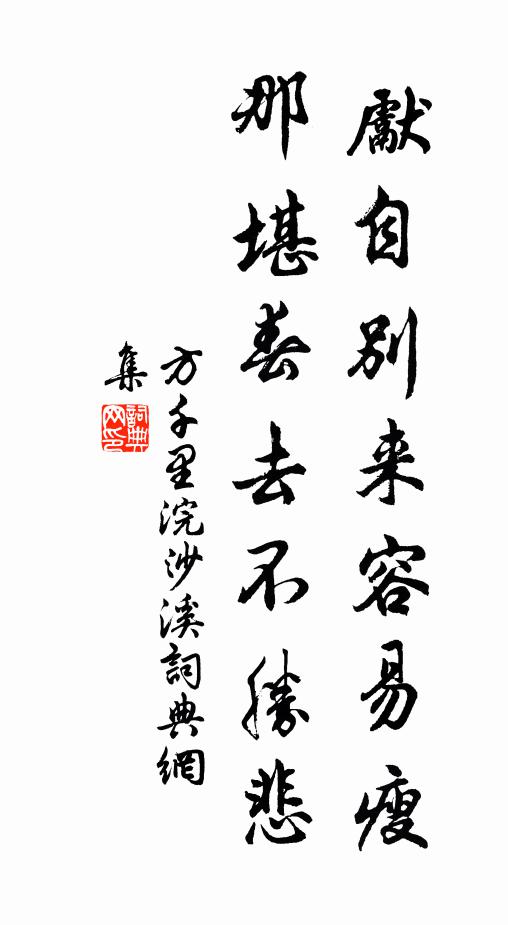 獻自別来容易瘦
那堪春去不勝悲
方千里浣沙溪詞典網
集
詞典
网印